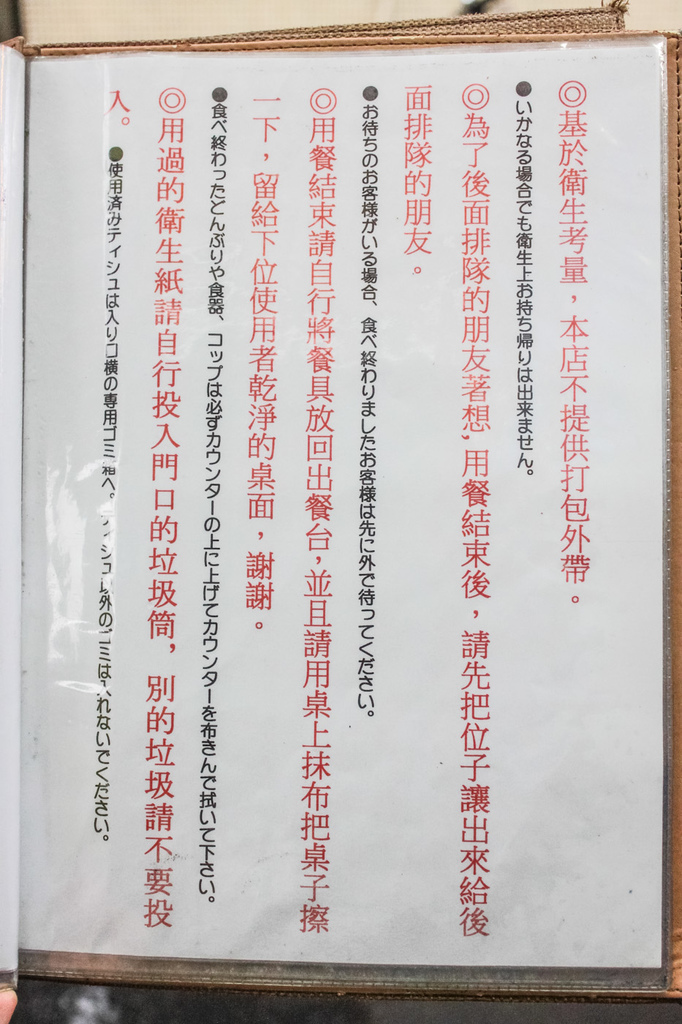 ◎基於衛生考量，本店不提供打包外帶。
●いかなる場合でも衛生上お持ち帰りは出来ません。
◎為了後面排隊的朋友著想，用餐結束後，請先把位子讓出來給後
面排隊的朋友。
●お待ちのお客様がいる場合、食べ終わりましたお客様は先に外で待ってください。
◎用餐結束請自行將餐具放回出餐台，並且請用桌上抹布把桌子擦
一下，留給下位使用者乾淨的桌面，謝謝。
●食べ終わったどんぶりや食器、コップは必ずカウンターの上に上げてカウンターを布きんで拭いて下さい。
◎用過的衛生紙請自行投入門口的垃圾筒，別的垃圾請不要投
入。
●使用済みティシュは入り口横の専用ゴミ箱へ。ティシュ以外のゴミは入れないでください。